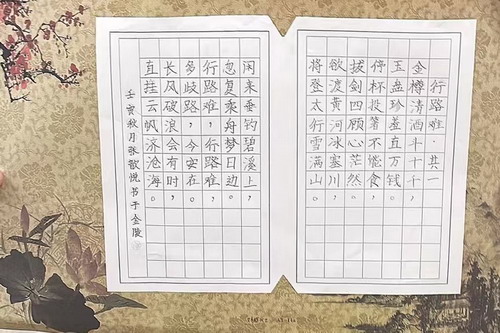 行路难·其一
金樽清酒斗十千，
玉盘珍羞直万钱。
停杯投箸不能食，
拔剑四顾心茫然。
欲渡黄河冰塞川，
将登太行雪满山。
闲来垂钓碧溪上，
忽复乘舟梦日边。
行路难，行路难，
多歧路，今安在。
长风破浪会有时，
直挂云帆济沧海。
壬寅秋月张歆悦书于金陵